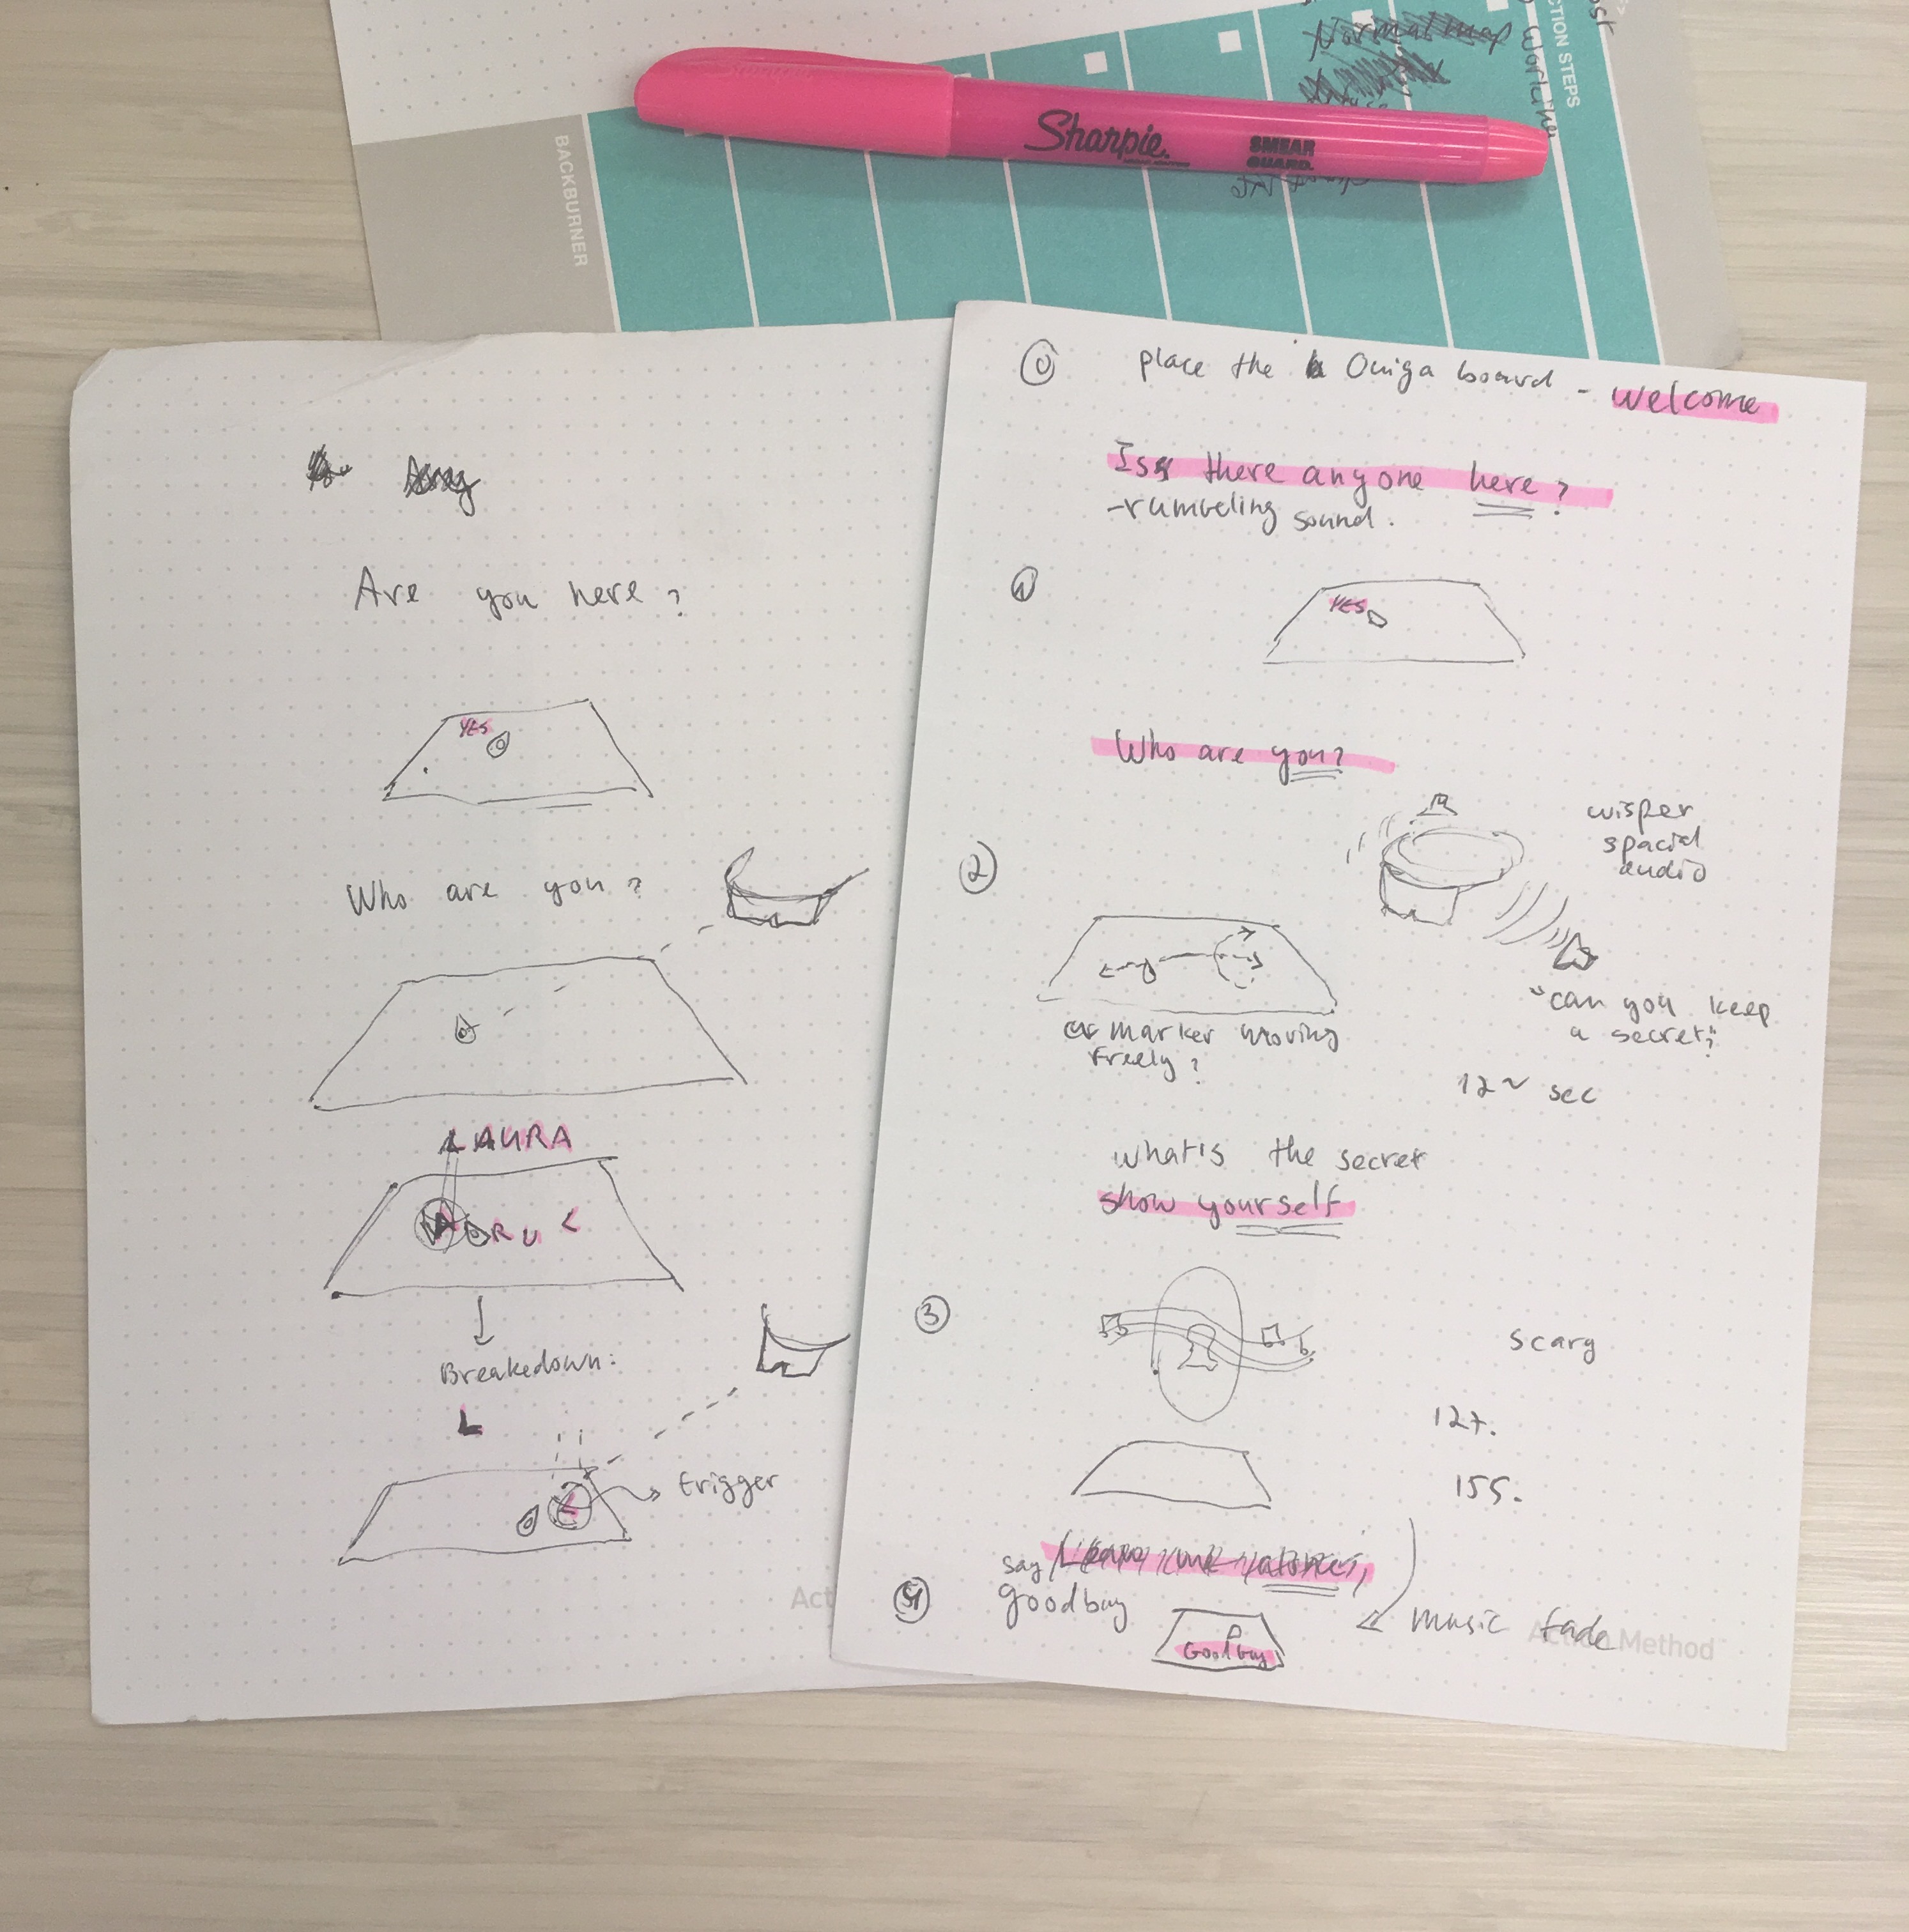 BACKBURNER
ACTION STEPS
Normal map
Sharpie.
SMEAR
GUARD.
Are you here?
YES
Who are you?
LAURA
A R U L
Breakedown:
L
L
trigger
Act
0 place the Ouiga board - welcome
Is there anyone here?
-rumbeling sound.
1
YES
Who are you?
2
wisper
spacial
audio
or marker moving
Freely?
"can you keep
a secret"?
12~ sec
what's the secret
show yourself
3
scary
12+.
15s.
say
goodbuy
Goodbuy
music fade
Action Method